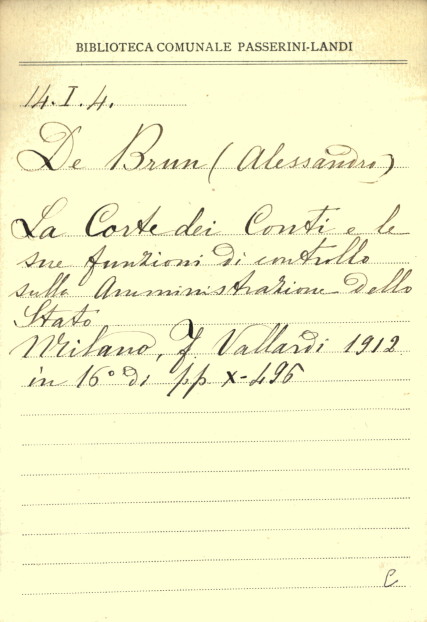 BIBLIOTECA COMUNALE PASSERINI-LANDI
14.I.4.
De Brun (Alessandro)
La Corte dei Conti e le
sue funzioni di controllo
sulla Amministrazione dello
Stato
Milano, F. Vallardi 1912
in 16° di pp x-496
C